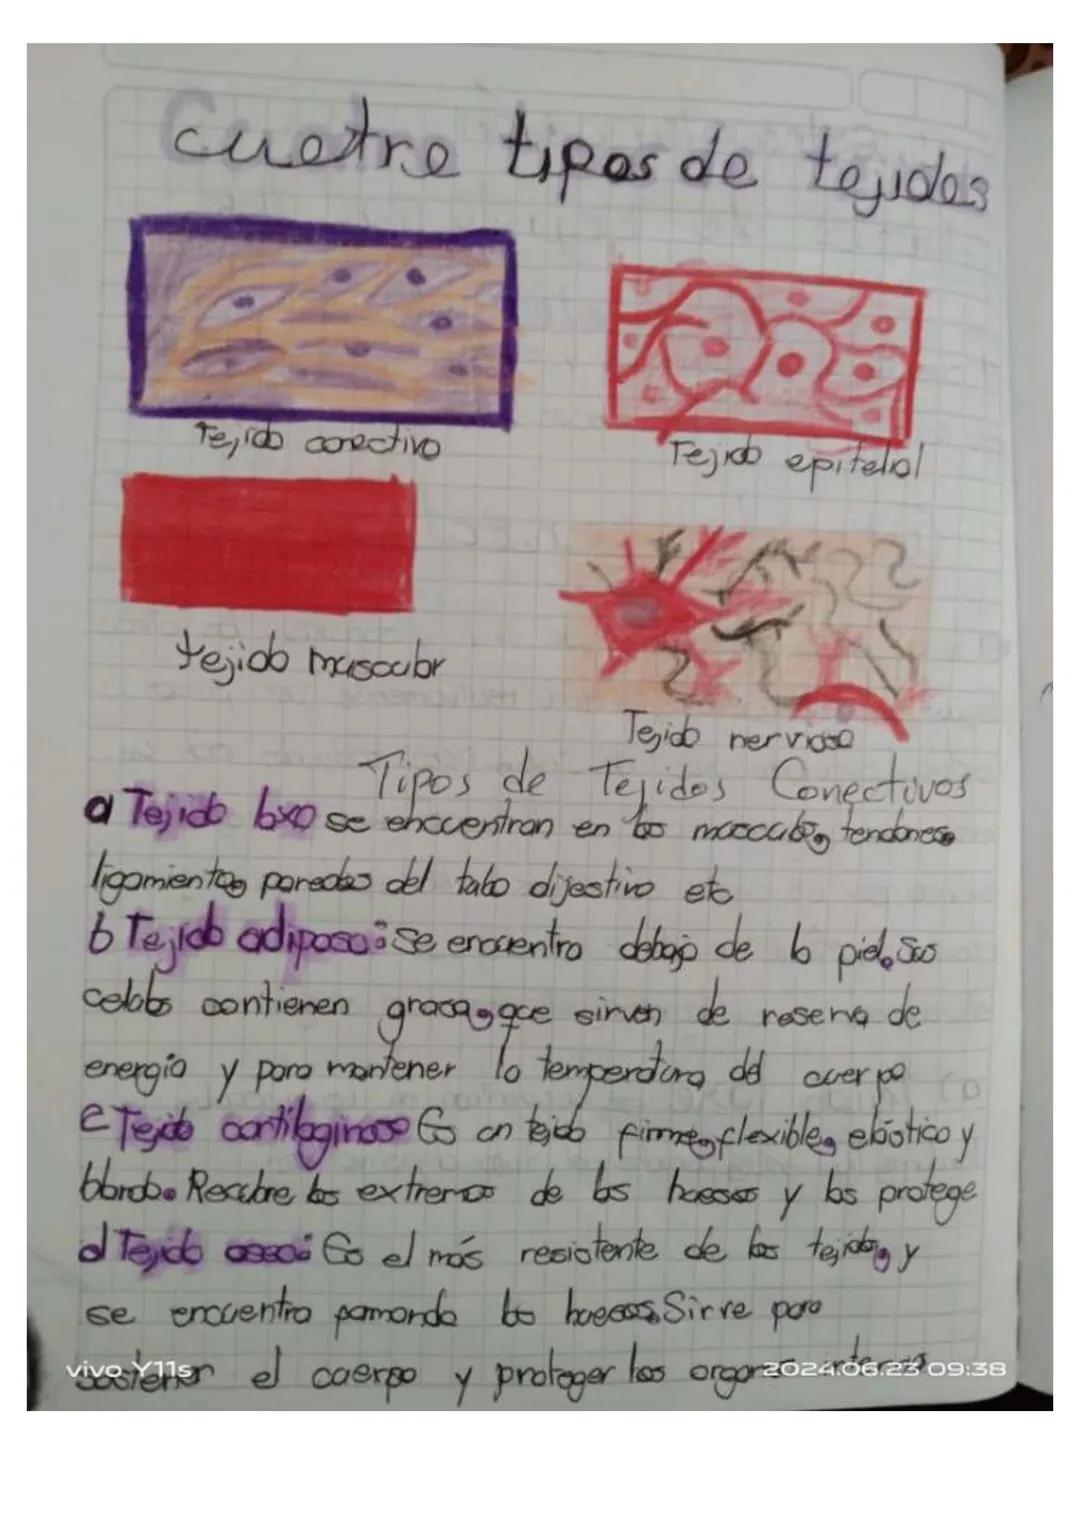 Cuatro tipos de tejidos
Tejido conectivo
Tejido epitelial
tejido muscular
Tejido nervioso
Tipos de Tejidos Conectivos
a Tejido laxo se encuentran en los musculos, tendones
ligamientos paredes del tubo dijestivo etc
b Tejido adiposo: se encuentra debajo de la piel. Sus
celulas contienen grasa, que sirven de reserva de
energia y para mantener la temperatura del cuerpo
c Tejido cartilaginoso Es un tejido firme, flexible, elástico y
blando. Recubre los extremos de los huesos y los protege
d Tejido oseo: Es el más resistente de los tejidos, y
se encuentra formando los huesos. Sirve para
sostener el cuerpo y proteger los organos internos
vivo Y11s
2024.06.23 09:38